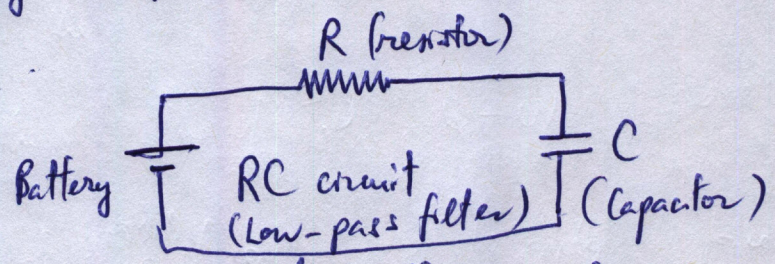 R (resistor)
Battery
RC circuit
(Low-pass filter)
C
(Capacitor)